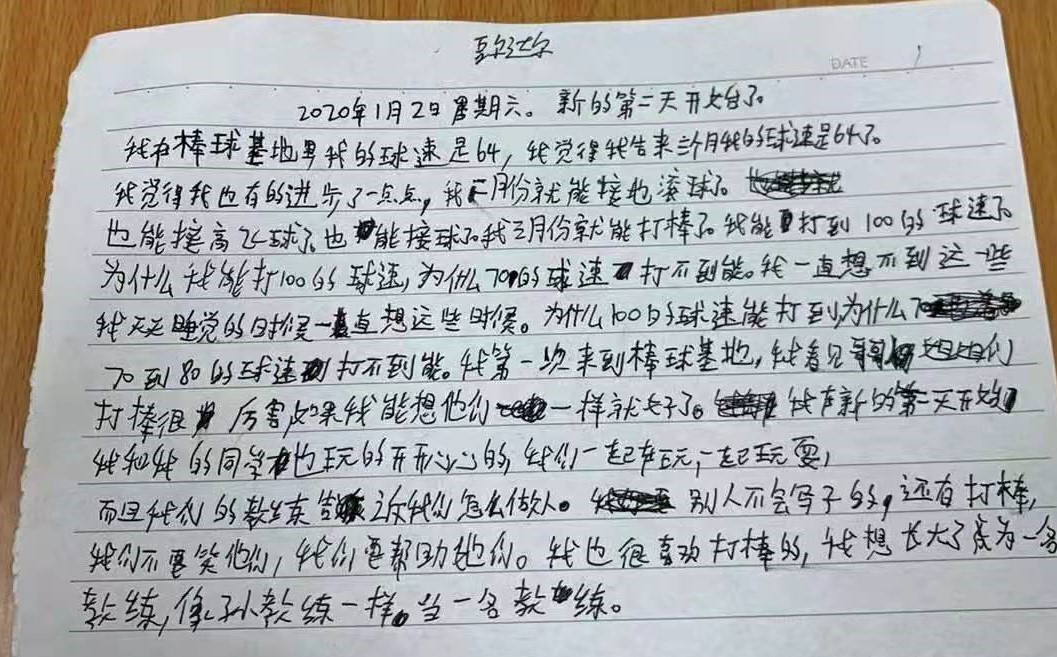 DATE
2020年1月2日星期六。新的第二天开始了。
我在棒球基地里我的球速是64,我觉得我告来三个月我的球速是64了。
我觉得我也有的进步了一点点,我二月份就能接地滚球了。
也能接高飞球了。也能接球了。我三月份就能打棒了。我能打到100的球速了
为什么我能打100的球速,为什么70的球速打不到能。我一直想不到这一些
我天天睡觉的时候一直想这些时候。为什么100的球速能打到为什么
70到80的球速打不到能。我第一次来到棒球基地,我看见哥哥姐姐们
打棒很厉害如果我能想他们一样就好了。我在新的第二天开始
我和我的同学也玩的开开心心的,我们一起在玩,一起玩耍,
而且我们的教练告诉我们怎么做人。别人不会写字的,还有打棒,
我们不要笑他们,我们要帮助他们。我也很喜欢打棒的,我想长大了成为一名
教练,像小教练一样。当一名教练。